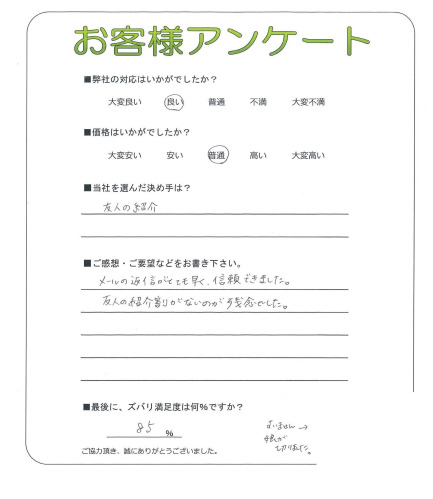 お客様アンケート
■弊社の対応はいかがでしたか?
大変良い 良い 普通 不満 大変不満
■価格はいかがでしたか?
大変安い 安い 普通 高い 大変高い
■当社を選んだ決め手は?
友人の紹介
■ご感想・ご要望などをお書き下さい。
メールの返信がとても早く、信頼できました。
友人の紹介割りがないのが残念でした。
■最後に、ズバリ満足度は何%ですか?
85 %
すいません→
端が
切れました。
ご協力頂き、誠にありがとうございました。